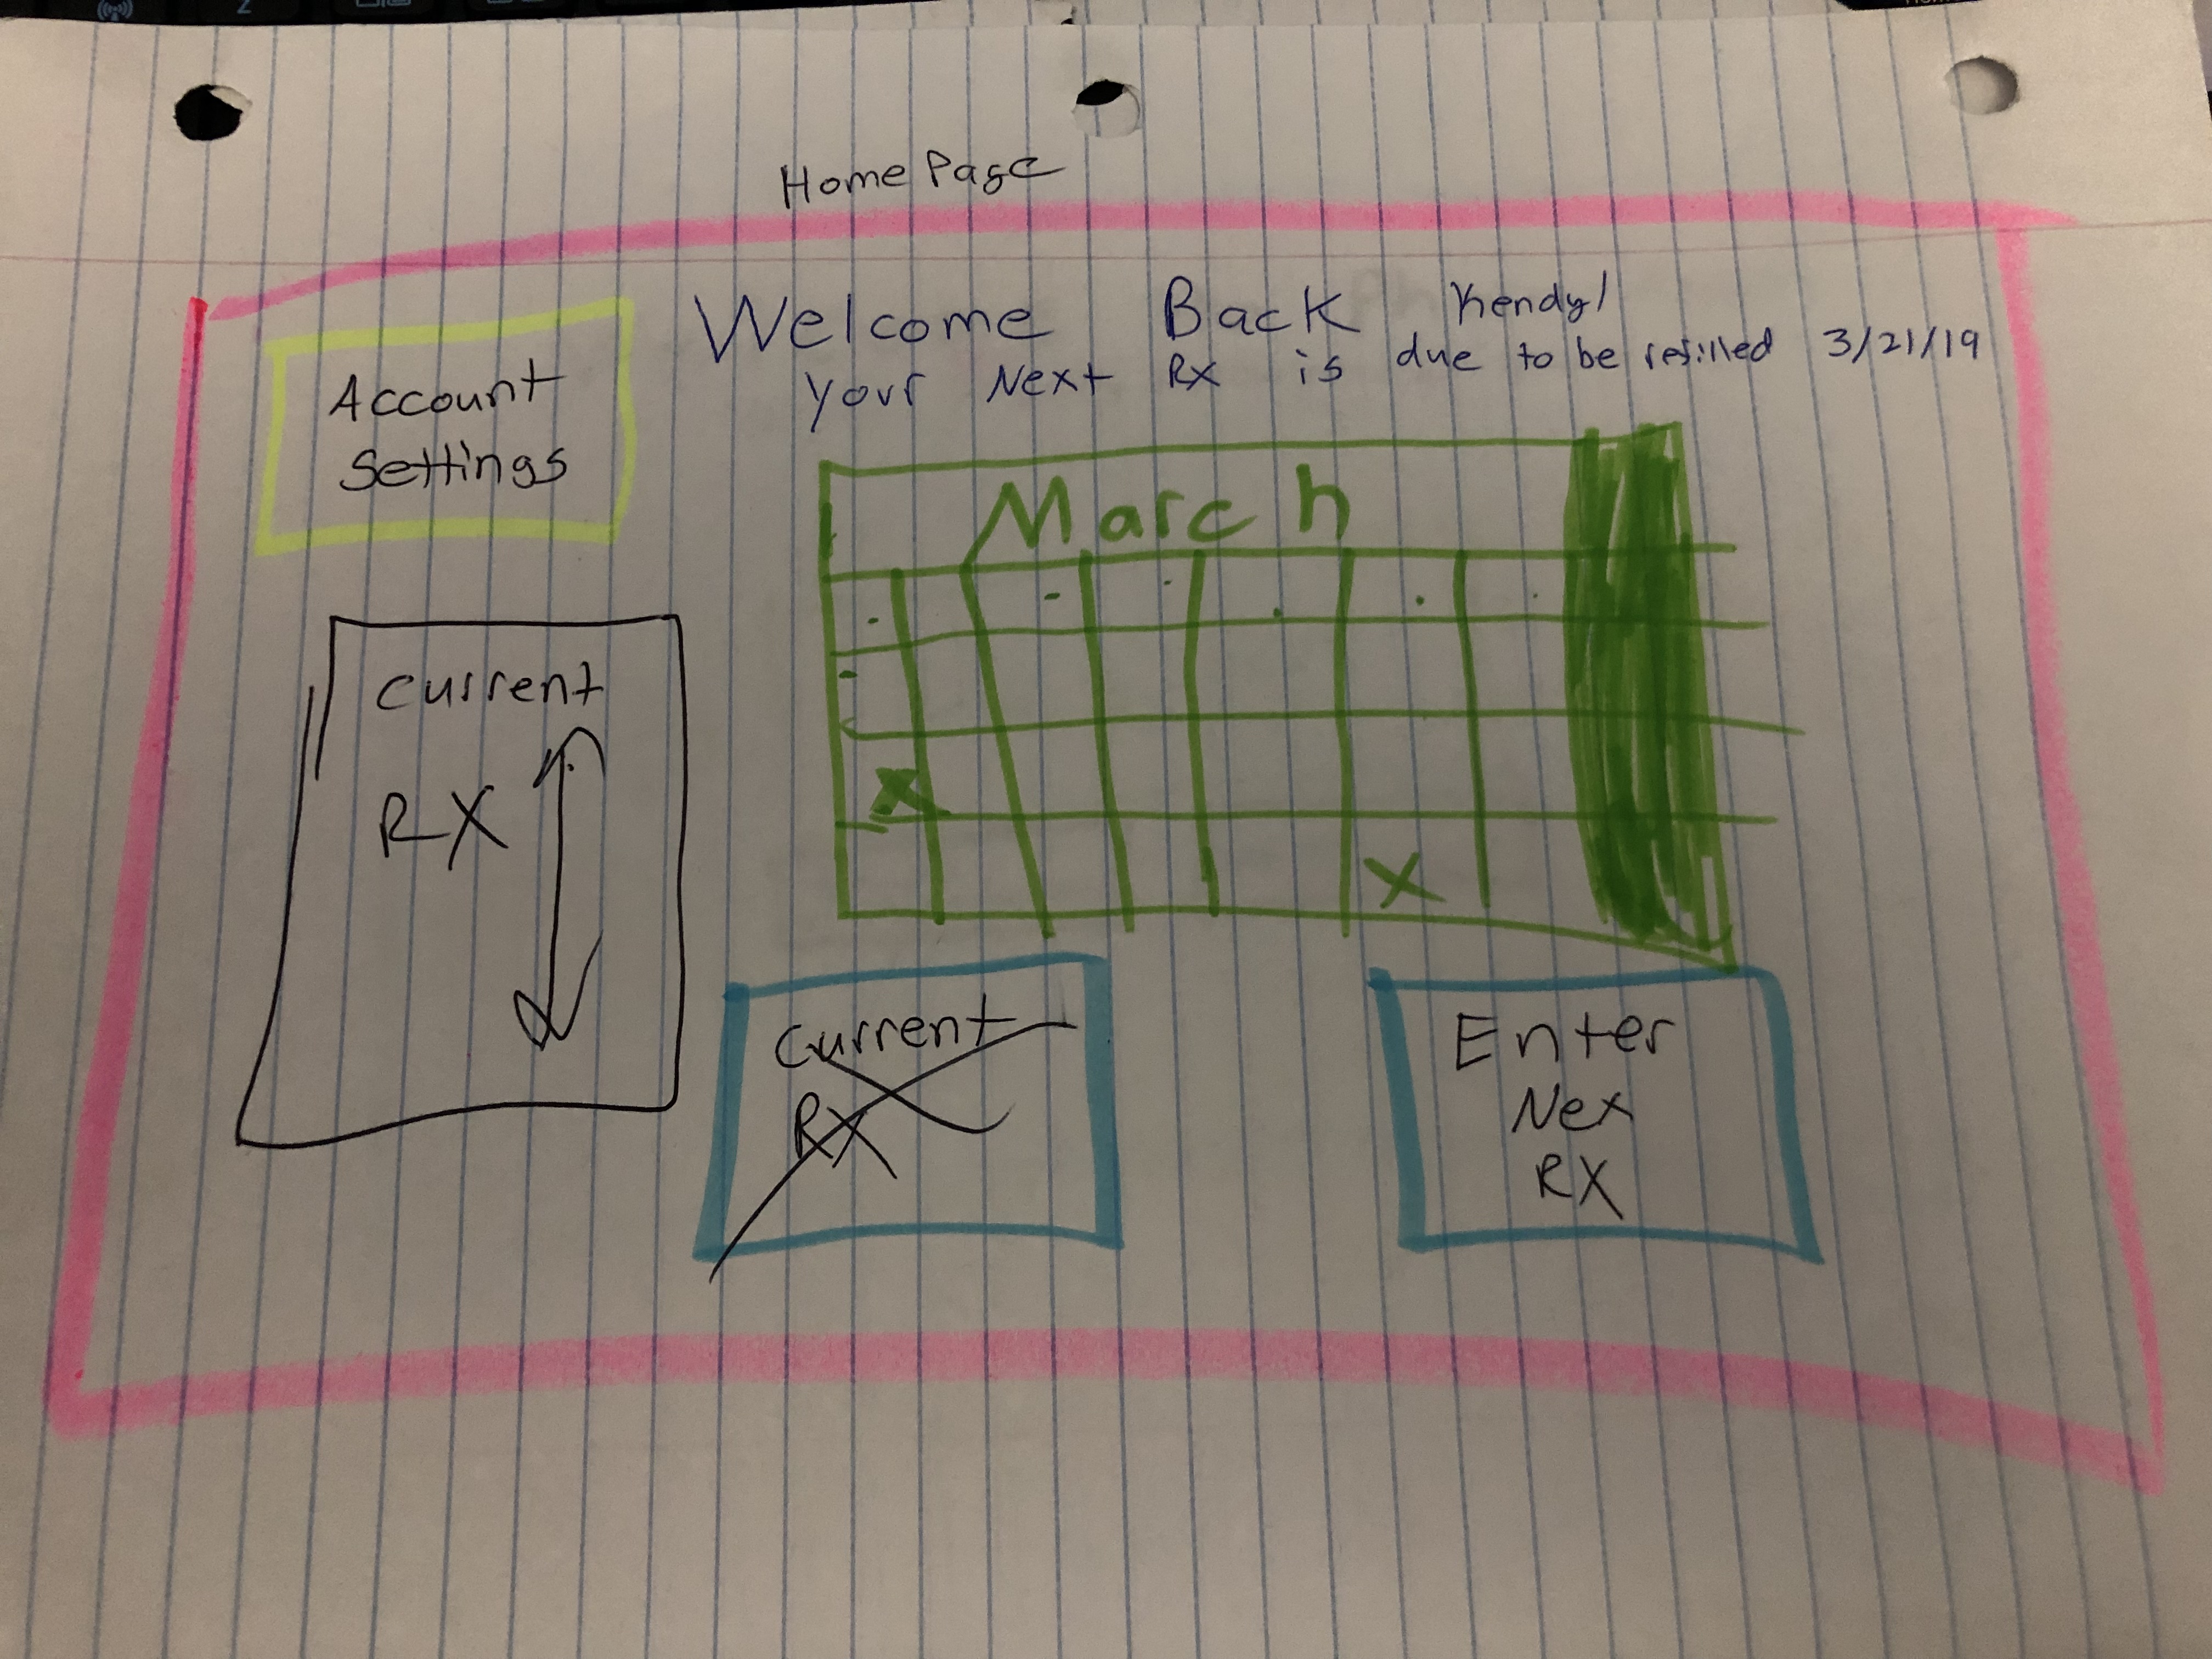 Home Page
Welcome Back Kendyl
Your Next Rx is due to be refilled 3/21/19
Account
Settings
March
Current
RX
X
X
Current
Rx
Enter
Nex
RX